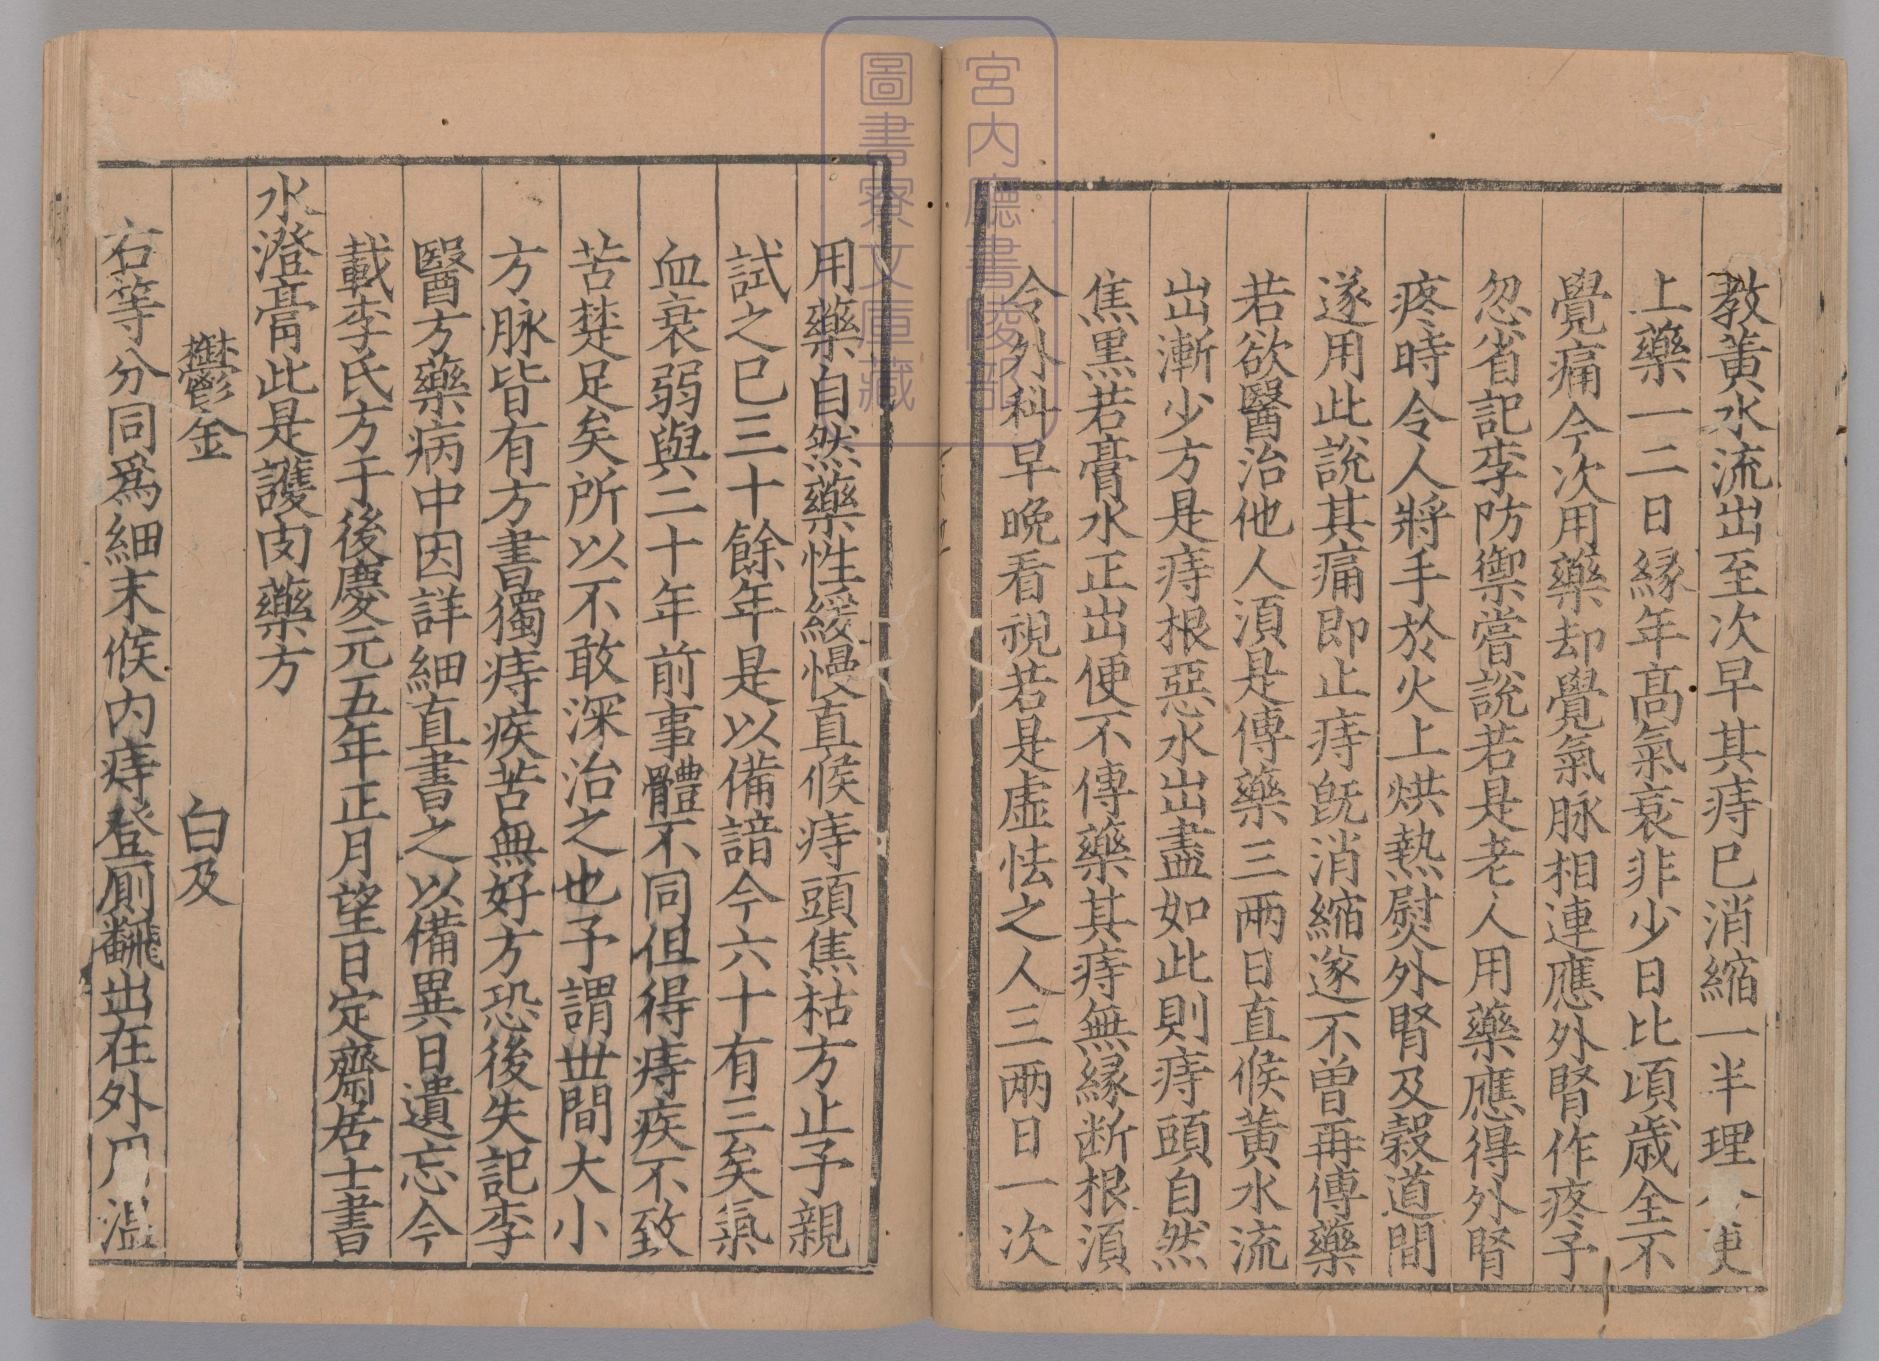 教黃水流出至次早其痔已消縮一半理更
上藥一二日緣年高氣衰非少日比頃歲全不
覺痛今次用藥却覺氣脉相連應外腎作疼予
忽省記李防禦嘗說若是老人用藥應得外腎
疼時令人將手於火上烘熱熨外腎及穀道間
遂用此說其痛即止痔旣消縮遂不曾再傅藥
若欲醫治他人須是傅藥三兩日直候黃水流
出漸少方是痔根惡水出盡如此則痔頭自然
焦黑若膏水正出便不傅藥其痔無緣断根須
令外科早晚看視若是虛怯之人三兩日一次
用藥自然藥性緩慢直候痔頭焦枯方止予親
試之已三十餘年是以備諳今六十有三矣氣
血衰弱與二十年前事體不同但得痔疾不致
苦楚足矣所以不敢深治之也予謂世間大小
方脉皆有方書獨痔疾苦無好方恐後失記李
醫方藥病中因詳細直書之以備異日遺忘今
載李氏方于後慶元五年正月望日定齋居士書
水澄膏此是護肉藥方
鬱金 白及
右等分同爲細末候内痔登厠翻出在外用温
宮内廳書陵部
圖書寮文庫藏